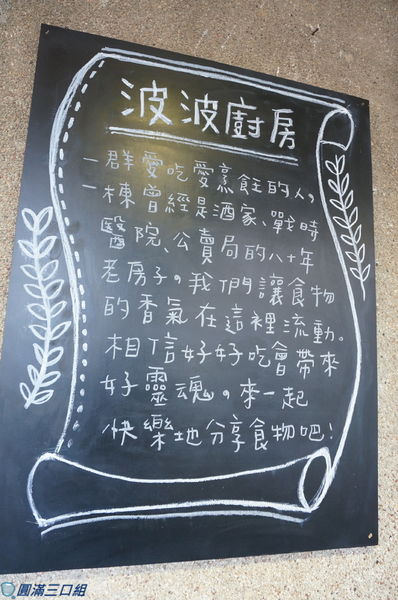 波波廚房
一群愛吃愛烹飪的人，
一棟曾經是酒家、戰時
醫院、公賣局的八十年
老房子。我們讓食物
的香氣在這裡流動。
相信好好吃會帶來
好靈魂。來一起
快樂地分享食物吧！
圓滿三口組